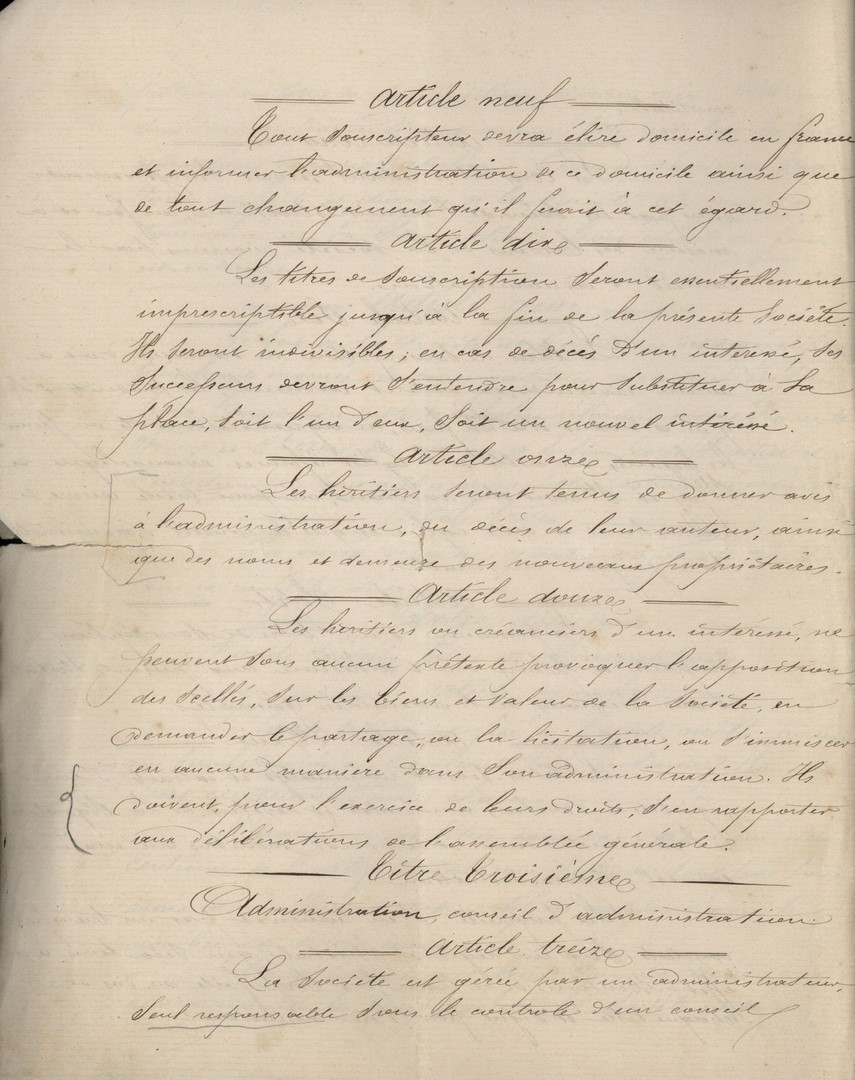 article neuf
Tout souscripteur devra élire domicile en france
et informer l'administration de ce domicile ainsi que
de tout changement qu'il ferait à cet égard.
article dix
Les titres de souscription seront essentiellement
imprescriptible jusqu'à la fin de la présente Société.
Ils seront indivisibles ; en cas de décés d'un interessé, ses
successeurs devront s'entendre pour substituer à sa
place, soit l'un d'eux, soit un nouvel intéréssé.
article onze
Les héritiers seront tenus de donner avis
à l'administration, du décés de leur auteur, ainsi
que des noms et demeure des nouveaux propriétaires.
Article douze
Les héritiers ou créanciers d'un intéréssé, ne
peuvent sous aucun prétexte provoquer l'apposition
des scellés, sur les biens et valeur de la Société, en
demander le partage, ou la licitation, ou s'immiscer
en aucune manière dans son administration. Ils
doivent, pour l'exercice de leurs droits, s'en rapporter
aux délibérations de l'assemblée générale.
Titre Troisième
Administration, conseil d'administration.
article treize
La Société est gérée par un administrateur,
seul responsable sous le controle d'un conseil